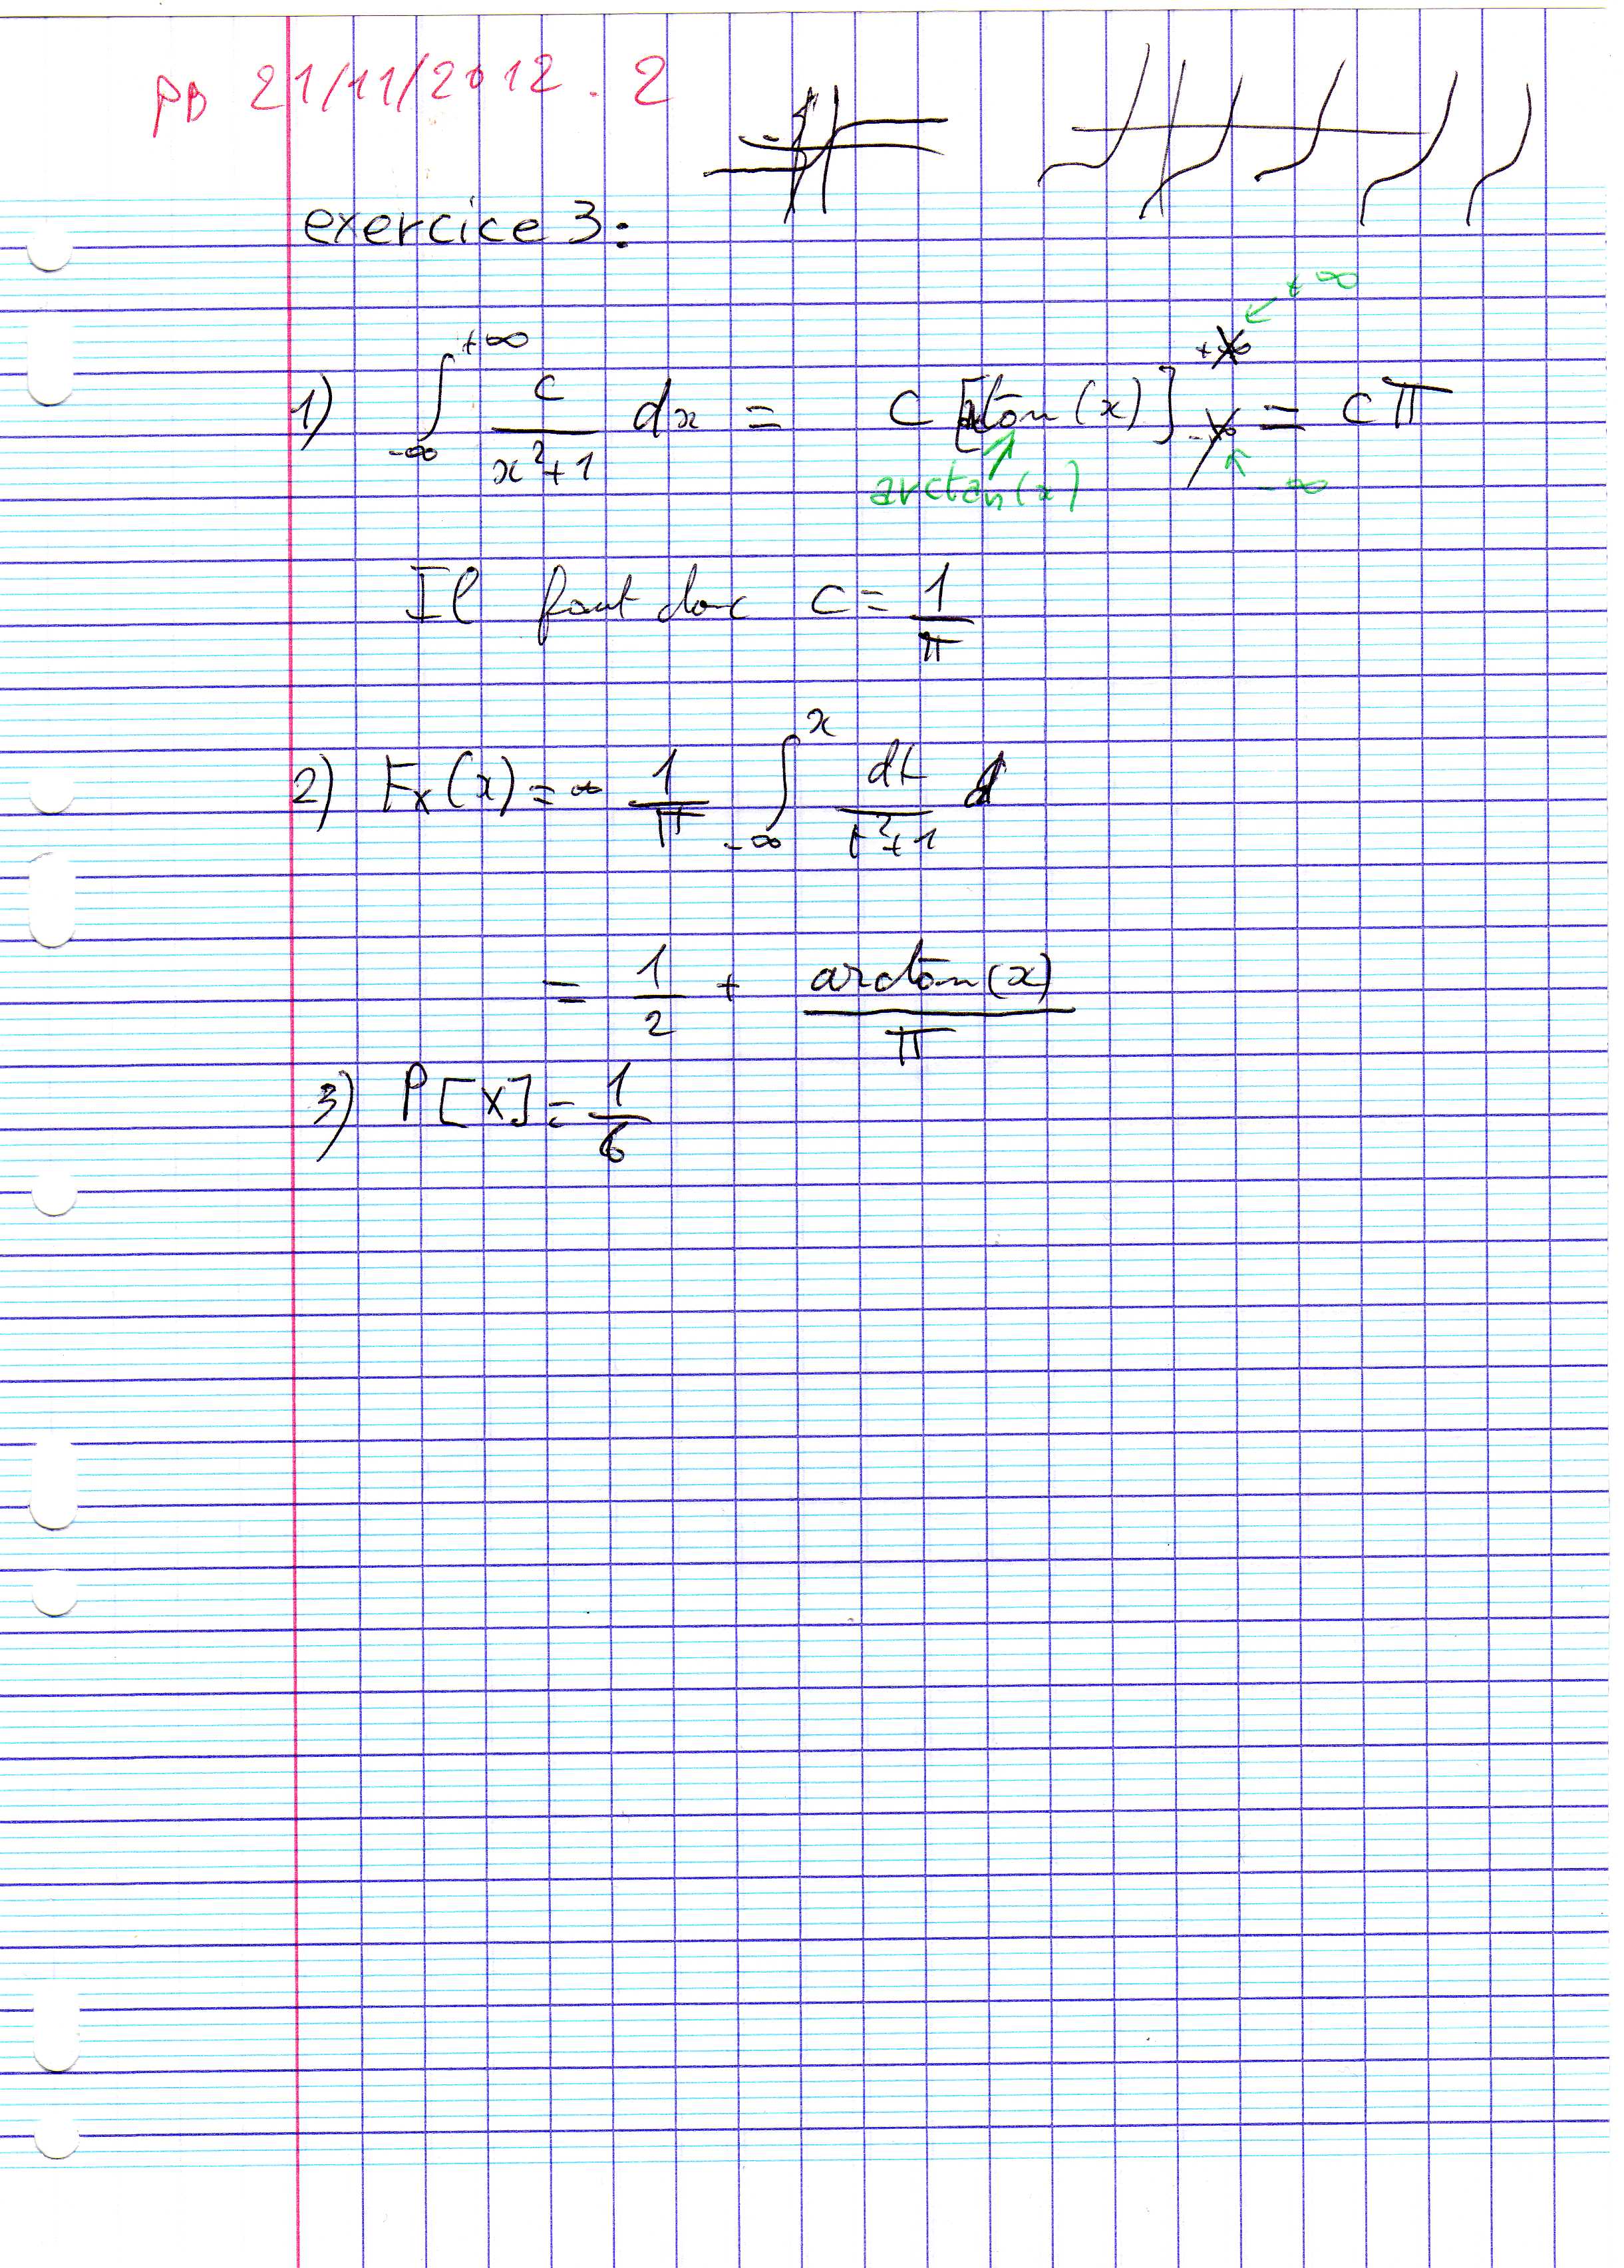 PB 21/11/2012 . 2
exercice 3:
+∞
1) ∫_{-∞}^{+∞} c/(x²+1) dx = c [tan(x)] = cπ
arctan(x) -∞
Il faut donc c = 1/π
2) F_X(x) = 1/π ∫_{-∞}^{x} dt/(t²+1)
= 1/2 + arctan(x)/π
3) P[X] = 1/6